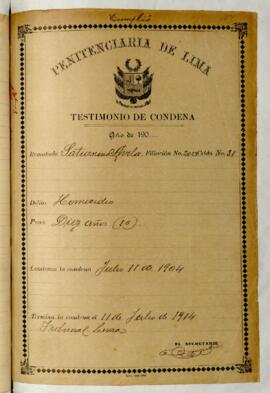 Cumplió
PENITENCIARIA DE LIMA
TESTIMONIO DE CONDENA
Año de 190
Rematado Saturnino Avila Filiación No. Celda No. 31
Delito Homicidio
Pena Diez años (10)
Comienza la condena Julio 11 de 1904
Termina la condena el 11 de Julio de 1914
Tribunal
EL SECRETARIO